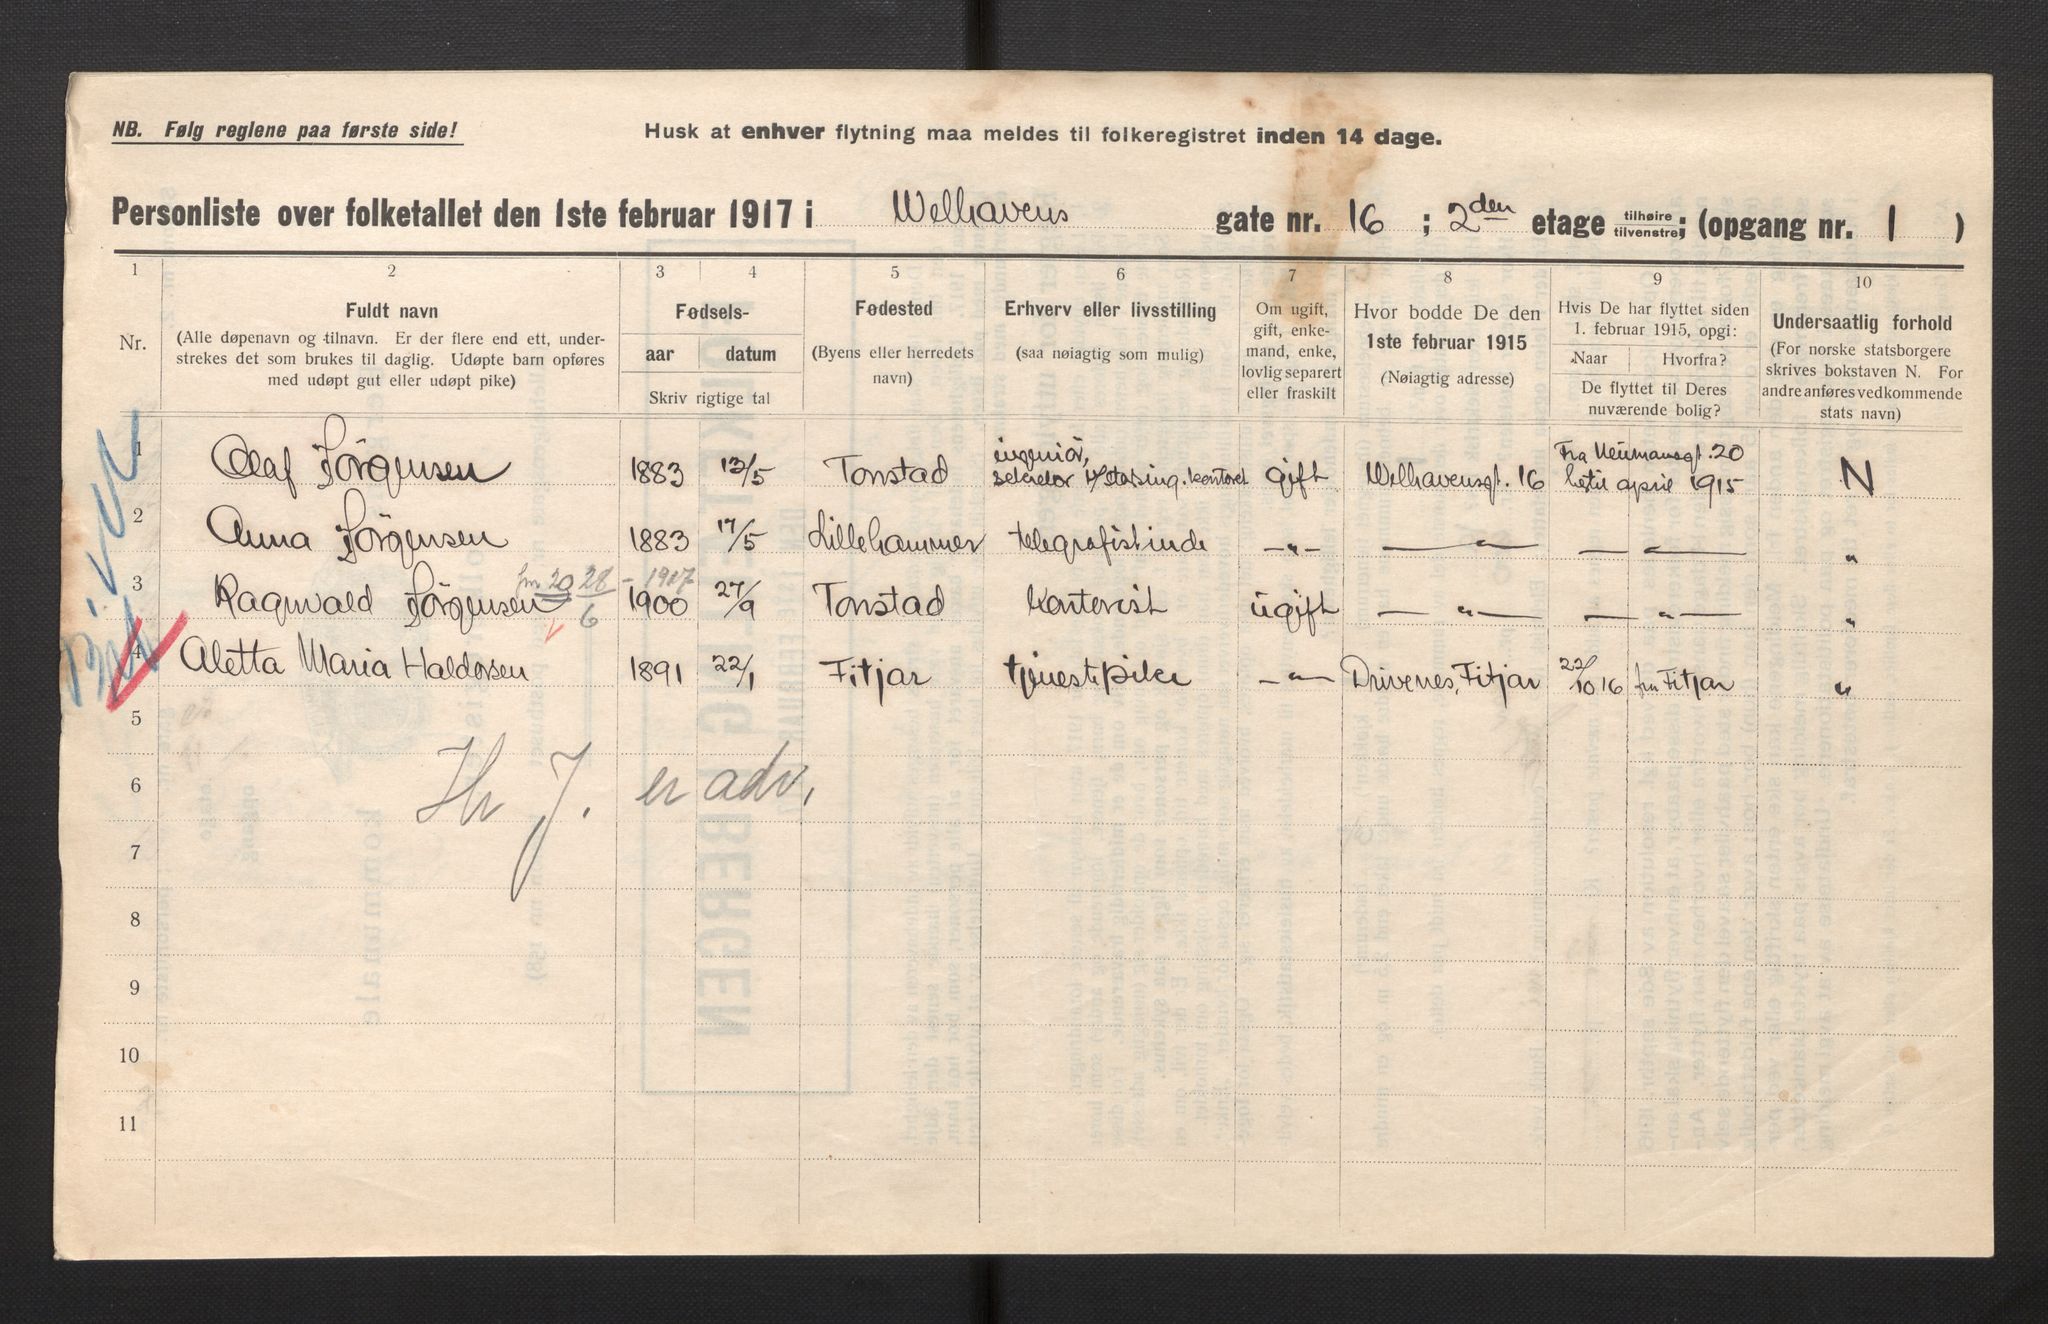 NB. Følg reglene paa første side!
Husk at enhver flytning maa meldes til folkeregistret inden 14 dage.
Personliste over folketallet den 1ste februar 1917 i Welhavens gate nr. 16 ; 2den etage tilhøire tilvenstre; (opgang nr. 1 )
1 2 3 4 5 6 7 8 9 10
Nr.
Fuldt navn
(Alle døpenavn og tilnavn. Er der flere end ett, under-
strekes det som brukes til daglig. Udøpte barn opføres
med udøpt gut eller udøpt pike)
Fødsels-
aar datum
Skriv rigtige tal
Fødested
(Byens eller herredets
navn)
Erhverv eller livsstilling
(saa nøiagtig som mulig)
Om ugift,
gift, enke-
mand, enke,
lovlig separert
eller fraskilt
Hvor bodde De den
1ste februar 1915
(Nøiagtig adresse)
Hvis De har flyttet siden
1. februar 1915, opgi:
Naar Hvorfra?
De flyttet til Deres
nuværende bolig?
Undersaatlig forhold
(For norske statsborgere
skrives bokstaven N. For
andre anføres vedkommende
stats navn)
1 Olaf Jörgensen 1883 13/5 Tonstad ingeniör, gift Welhavensgt. 16 Fra Neumansgt. 20 april 1915 N
2 Anna Jörgensen 1883 17/5 Lillehammer telegrafistinde -"- -"- -"- "
3 Ragnvald Jörgensen 28/6 - 1917 1900 27/9 Tonstad Kontorist ugift -"- -"- "
4 Aletta Maria Haldorsen 1891 22/1 Fitjar tjenestepike -"- Drivenes, Fitjar 22/10 16 fra Fitjar "
5
6 Hr J. er adv.
7
8
9
10
11